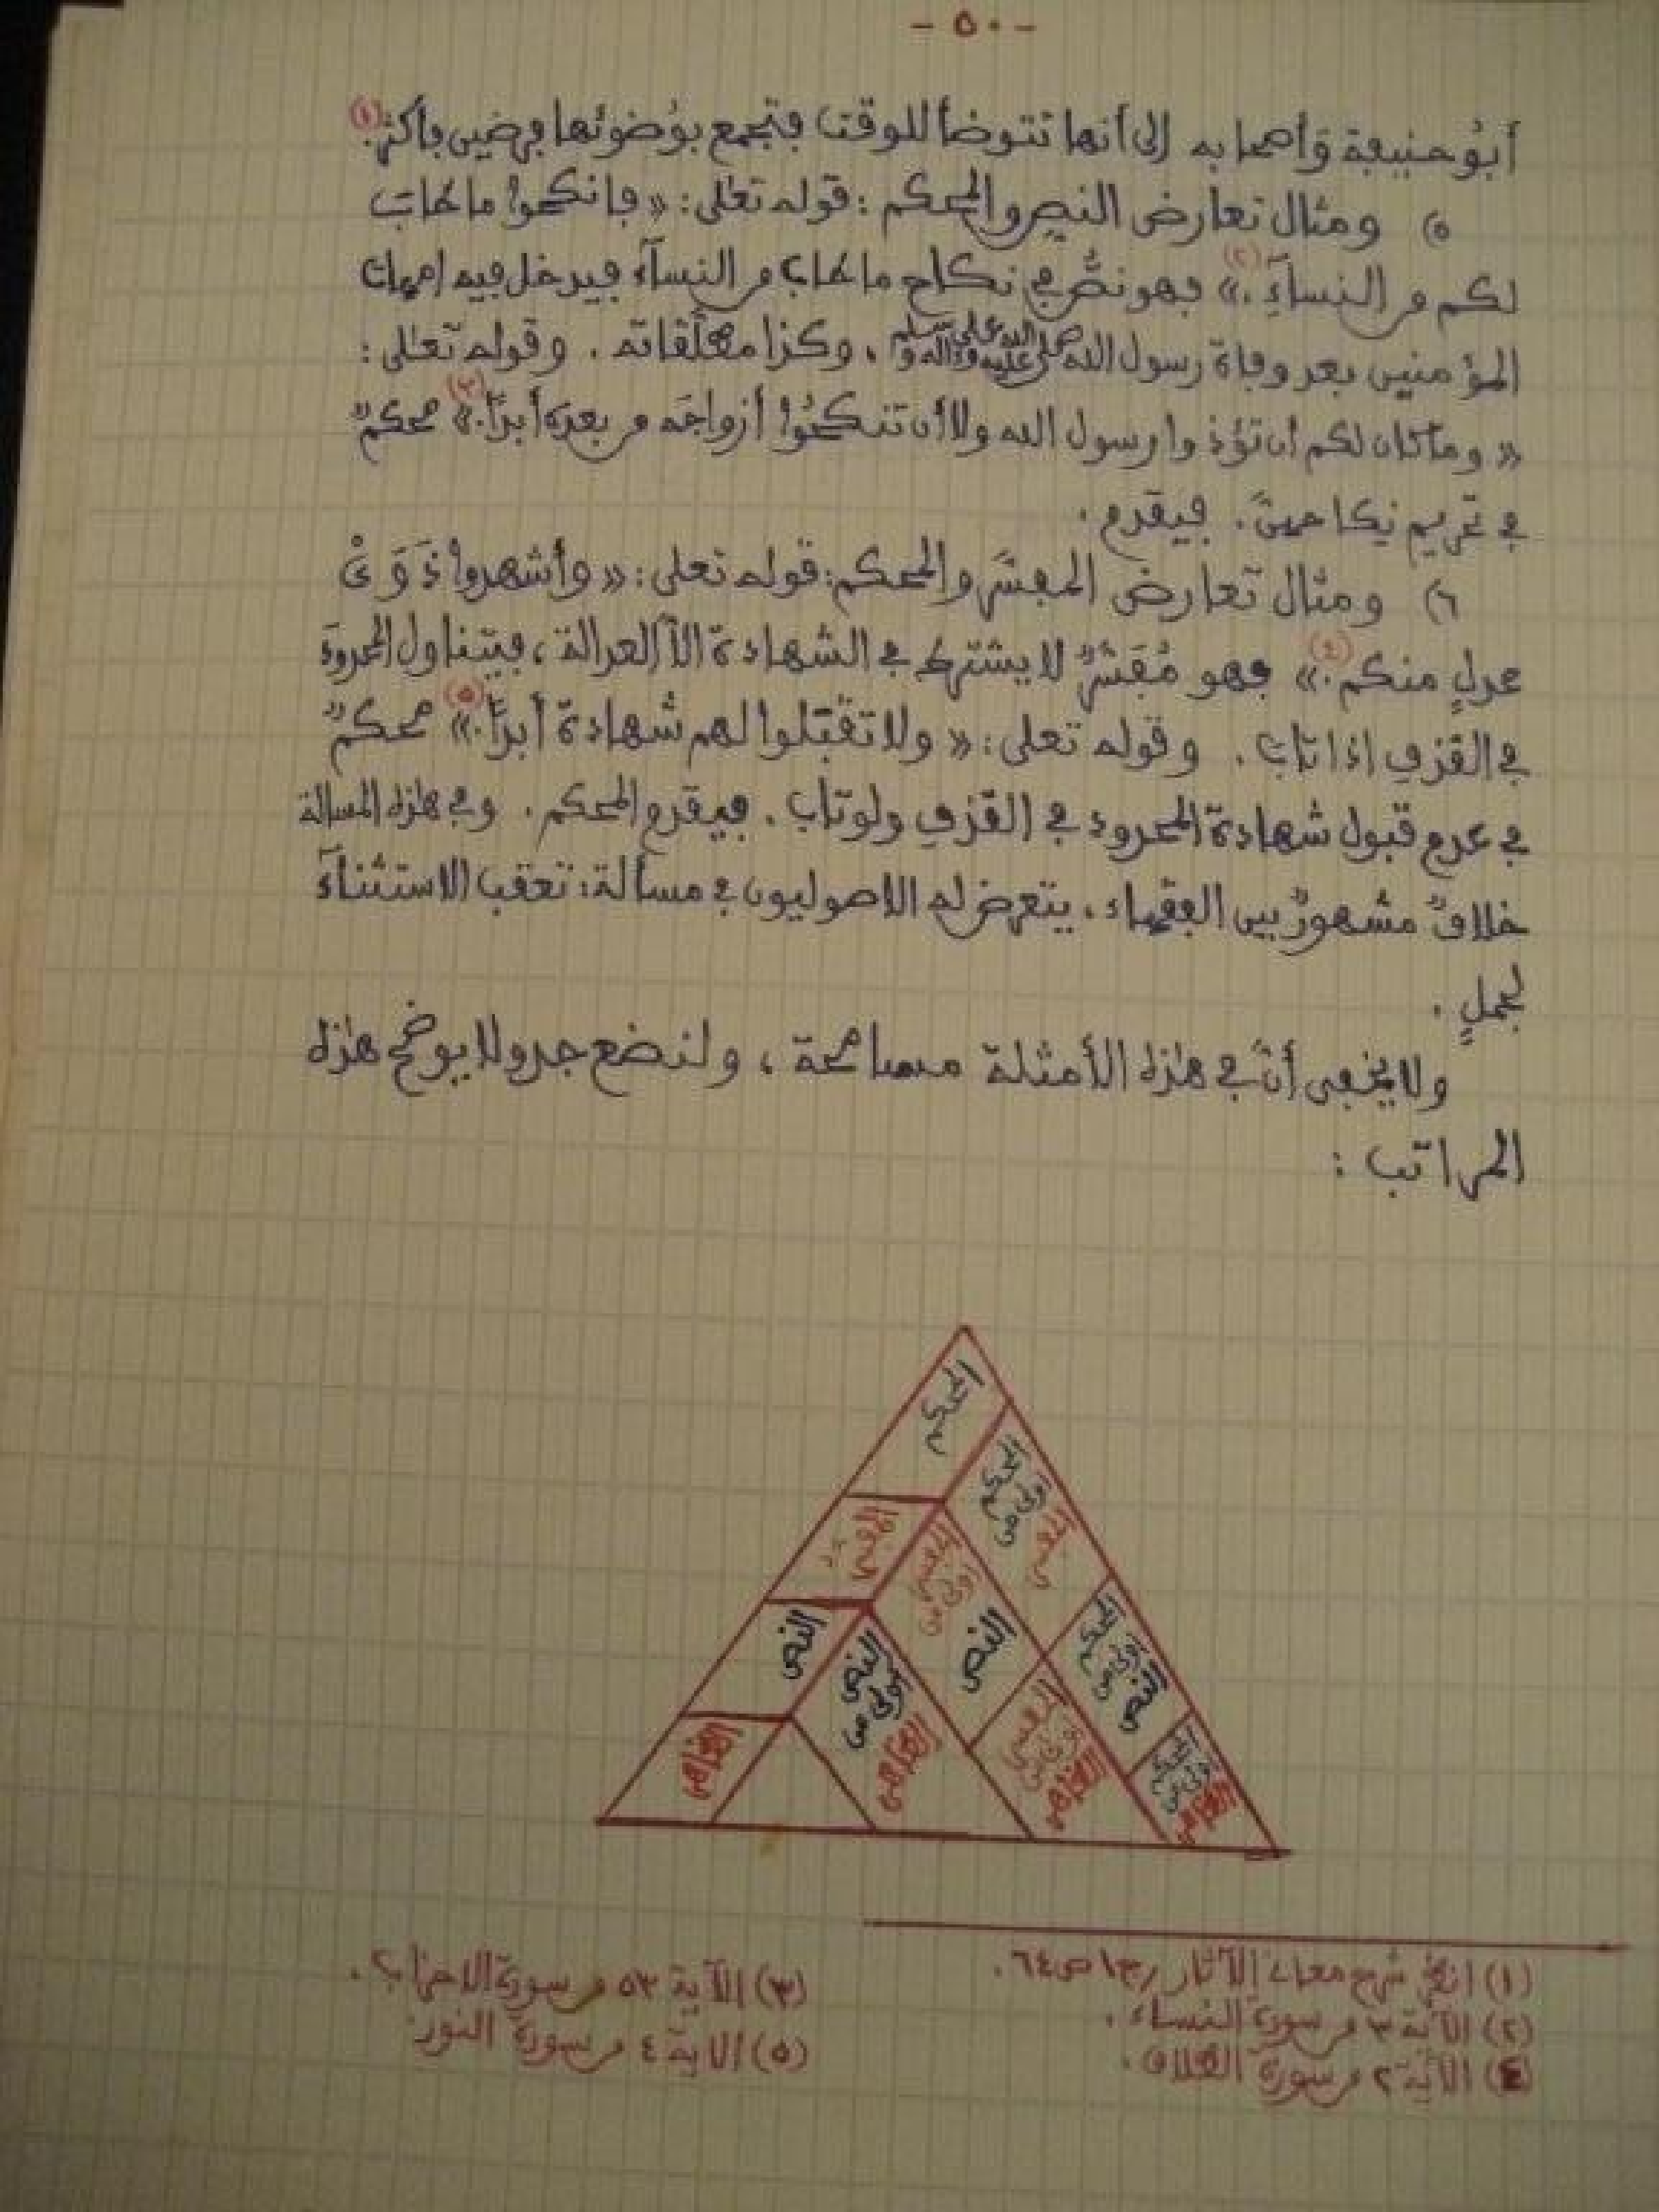 - ٥٠ -
أبو حنيفة وأصحابه إلى أنها تتوضأ للوقت فتجمع بوضوئها فرضين فأكثر. (١)
٥) ومثال تعارض النص والمحكم : قوله تعلى : « فانكحوا ما طاب
لكم من النسآءِ . » (٢) فهو نصٌّ في نكاح ما طاب من النسآء فيدخل فيه امهات
المؤمنين بعد وفاة رسول الله صلى الله عليه وءاله وسلم ، وكذا مطلقاته . وقوله تعلى :
« وما كان لكم أن تؤذوا رسول الله ولا أن تنكحُوا أزواجَه من بعده أبدًا . » (٣) محكمٌ
في تحريم نكاحهنّ . فيقدم .
٦) ومثال تعارض المفسَّر والمحكم : قوله تعلى : « وأشهدوا ذَوَىْ
عدلٍ منكم . » (٤) فهو مُفَسَّرٌ لا يشترط في الشهادة الا العدالة ، فيتناول المحدودَ
في القذف اذا تاب . وقوله تعلى : « ولا تقبلوا لهم شهادة أبدًا . » (٥) محكمٌ
في عدم قبول شهادة المحدود في القذف ولو تاب . فيقدم المحكم . وفي هذه المسالة
خلافٌ مشهورٌ بين الفقهاء ، يتعرض له الاصوليون في مسألة : تعقب الاستثنآء
لجملٍ .
ولا يخفى أنّ في هذه الأمثلة مسامحة ، ولنضع جدولا يوضح هذه
المراتب :
المحكم
المحكم أولى من المفسر
المفسر
المفسر أولى من النص
المحكم أولى من النص
النص
النص أولى من الظاهر
المفسر أولى من الظاهر
المحكم أولى من الظاهر
الظاهر
(١) انظر شرح معاني الآثار ، ج ١ ص ٦٤ .
(٢) الآية ٣ من سورة النساء .
(٣) الآية ٥٣ من سورة الاحزاب .
(٤) الآية ٢ من سورة الطلاق .
(٥) الاية ٤ من سورة النور .